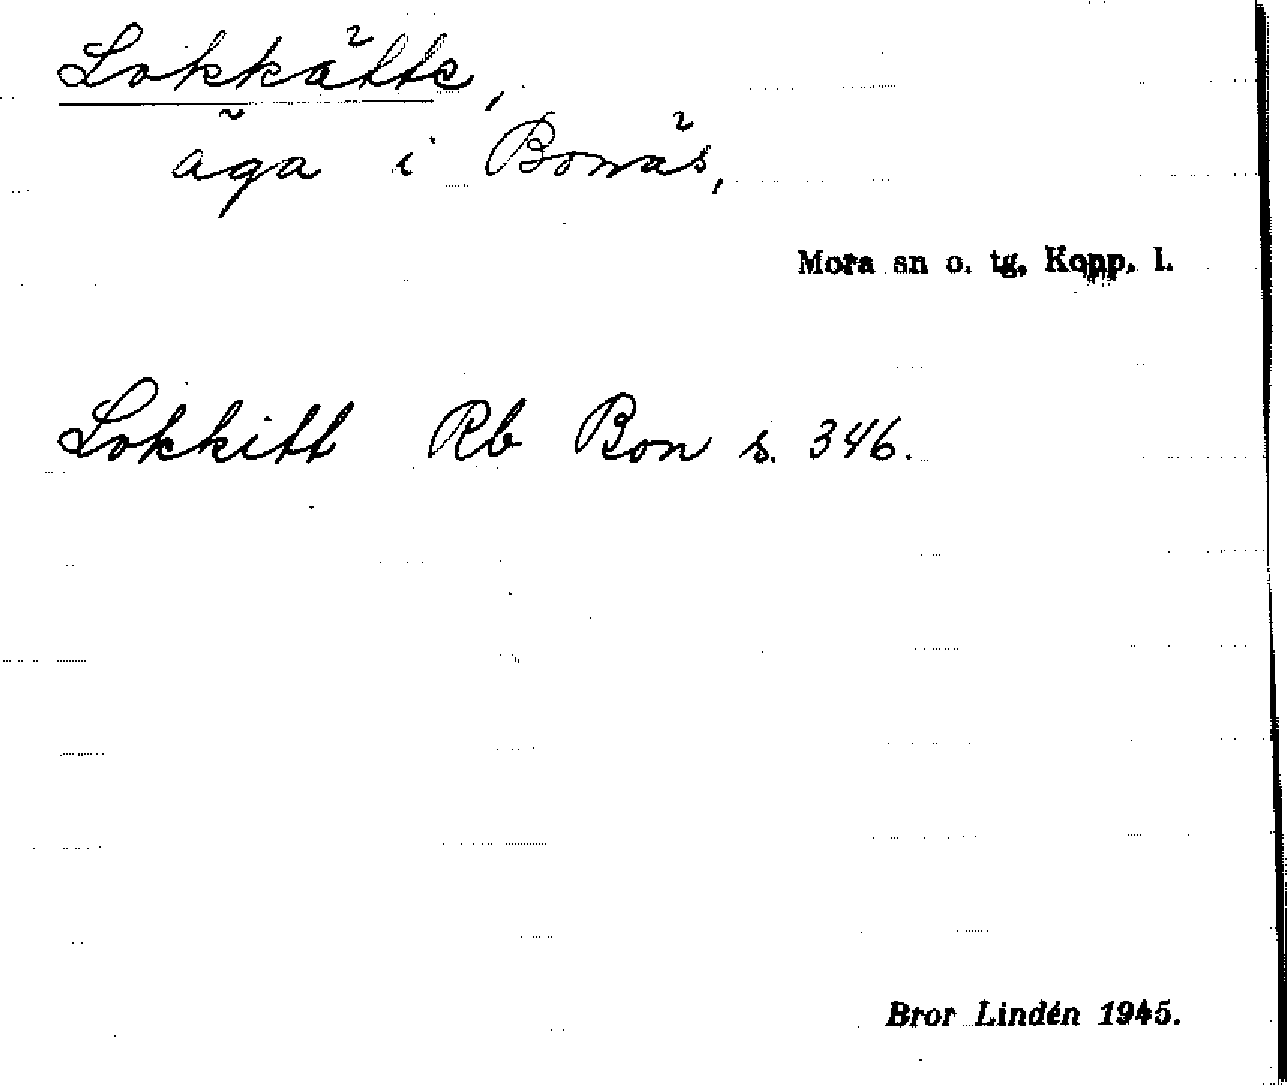 Lokkätts,
äga i Bonäs,
Mora sn o. tg, Kopp. l.
Lokkitt Rb Bon s. 346.
Bror Lindén 1945.